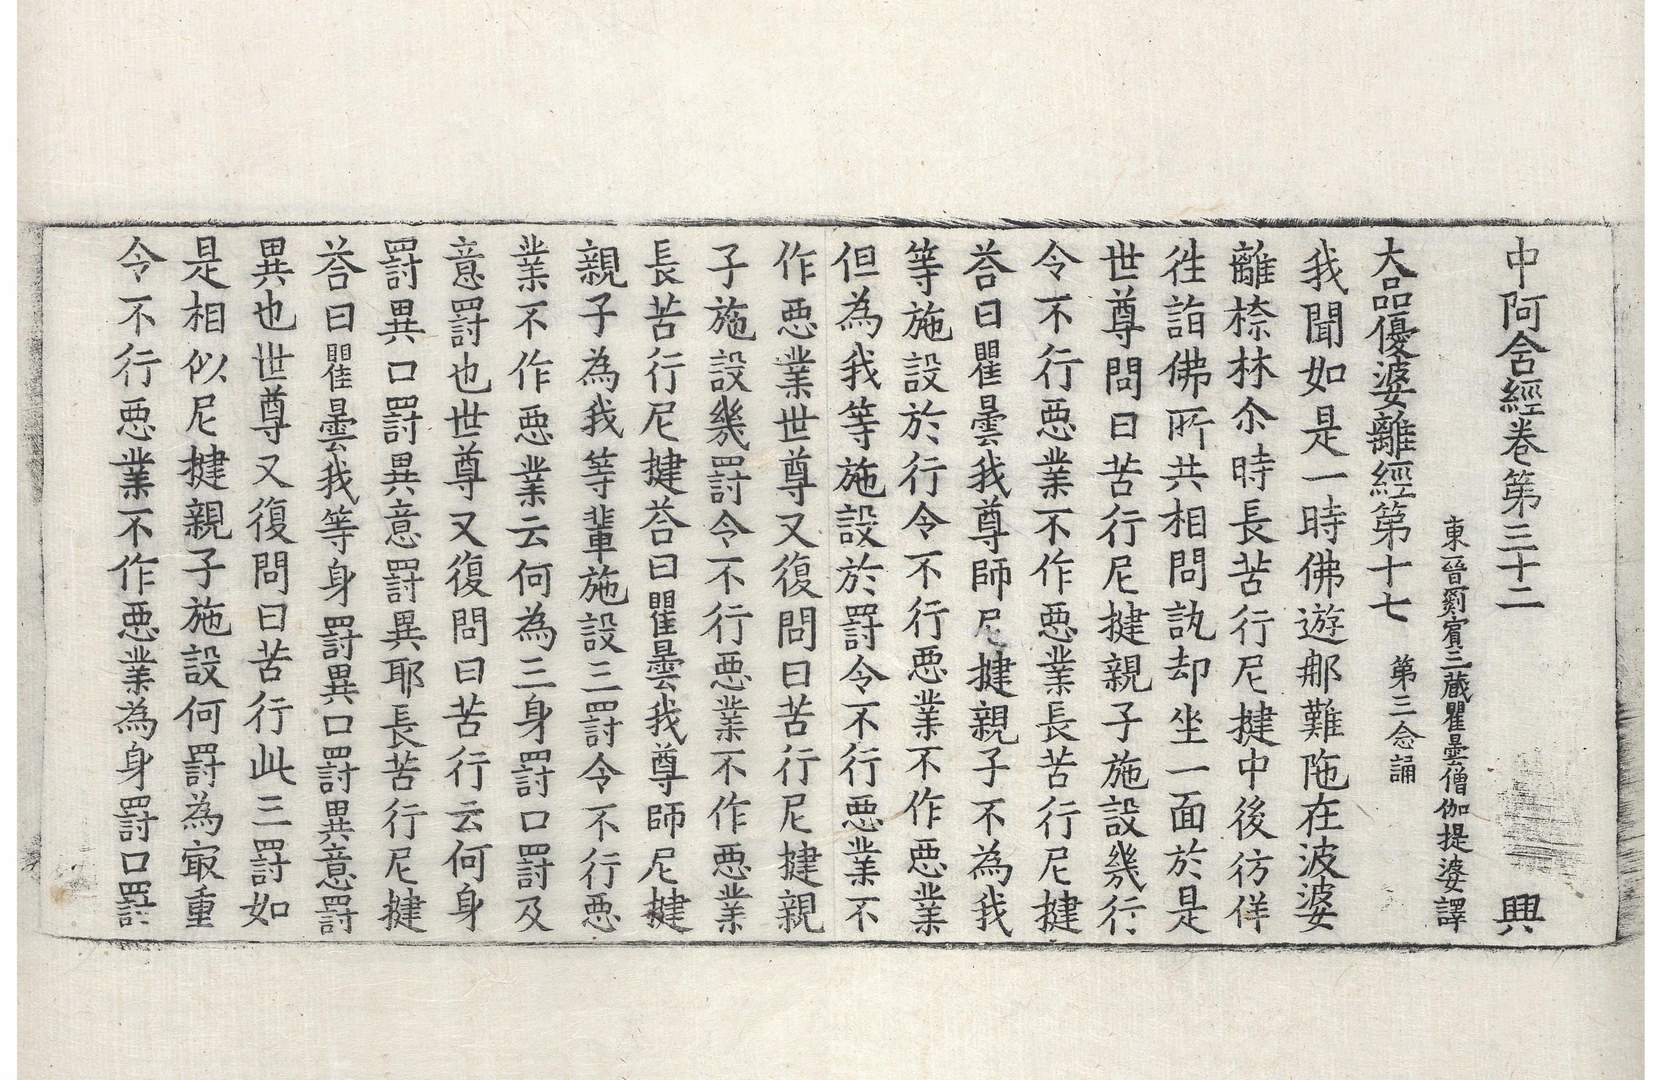 中阿含經卷第三十二　興
東晉罽賓三藏瞿曇僧伽提婆譯
大品優婆離經第十七　第三念誦
我聞如是一時佛遊那難陁在波婆
離㮈林尒時長苦行尼揵中後彷徉
徃詣佛所共相問訊却坐一面於是
世尊問曰苦行尼揵親子施設幾行
令不行惡業不作惡業長苦行尼揵
荅曰瞿曇我尊師尼揵親子不為我
等施設於行令不行惡業不作惡業
但為我等施設於罰令不行惡業不
作惡業世尊又復問曰苦行尼揵親
子施設幾罰令不行惡業不作惡業
長苦行尼揵荅曰瞿曇我尊師尼揵
親子為我等輩施設三罰令不行惡
業不作惡業云何為三身罰口罰及
意罰也世尊又復問曰苦行云何身
罰異口罰異意罰異耶長苦行尼揵
荅曰瞿曇我等身罰異口罰異意罰
異也世尊又復問曰苦行此三罰如
是相似尼揵親子施設何罰為㝡重
令不行惡業不作惡業為身罰口罰